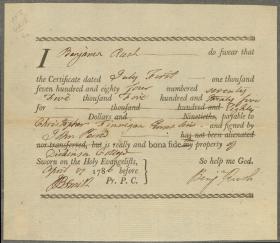 I Benjamin Rush do swear that
the Certificate dated July First one thousand
seven hundred and eighty four numbered seventy
five thousand five hundred and twenty five
for thousand hundred and
Dollars and Ninetieths, payable to
Christopher and signed by
John Pierce has not been alienated
nor transferred, but is really and bona fide my property of
Dickinson College
Sworn on the Holy Evangelists, So help me God.
April 17 1786 before
Pr. P. C. Benj Rush